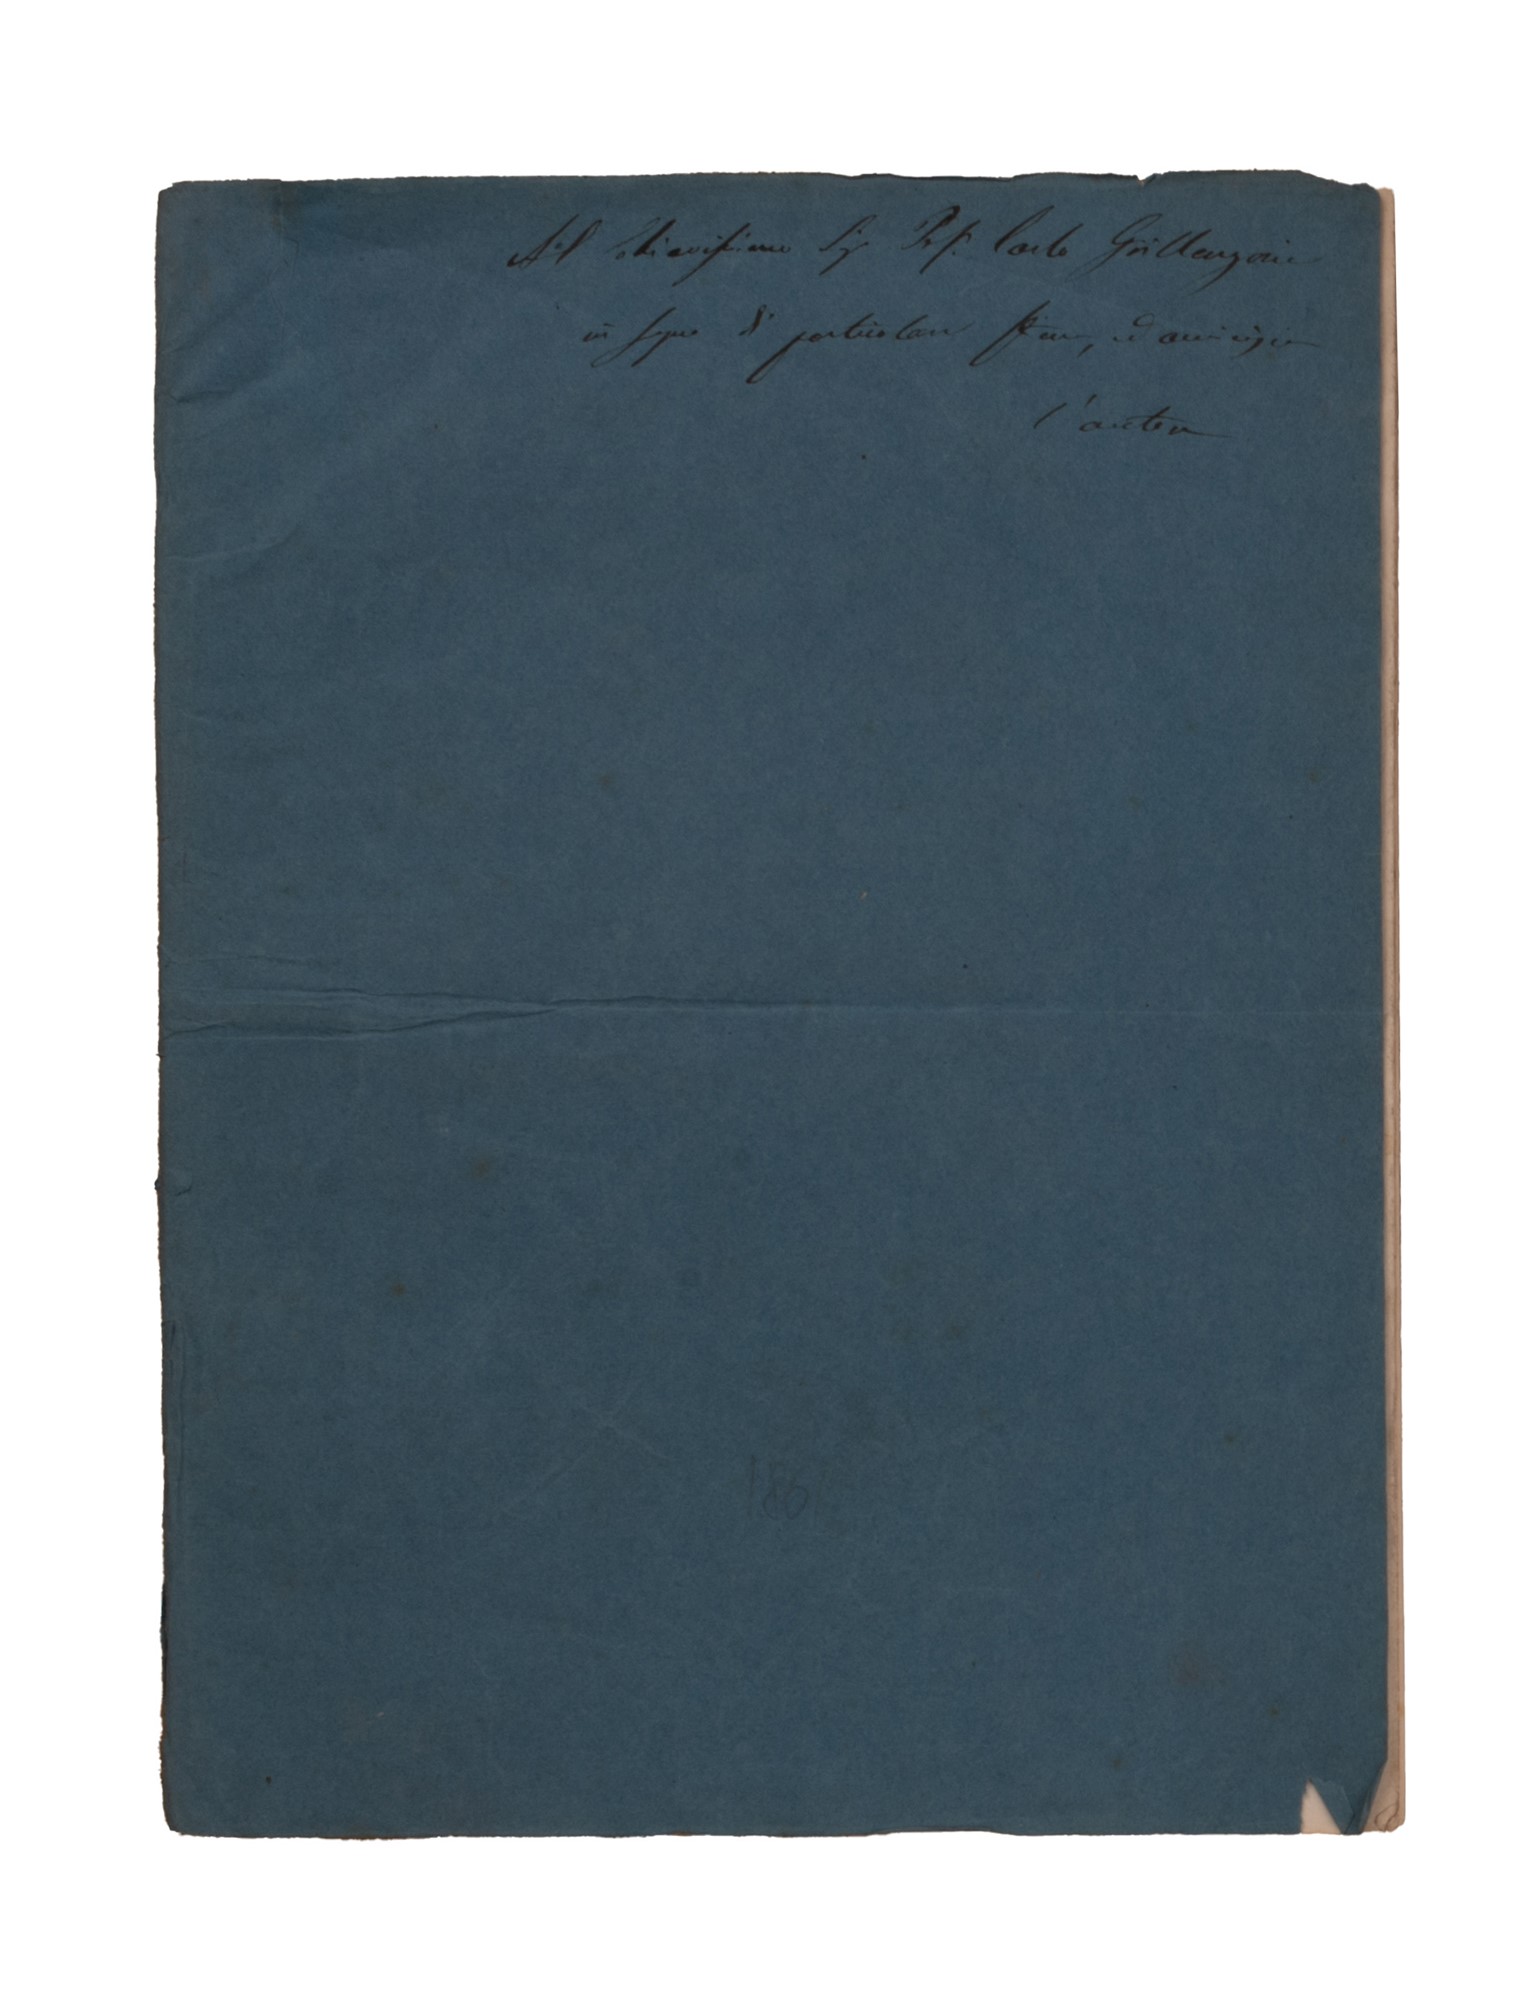 Al Chiarissimo Sig Prof. Carlo Grillenzoni
in segno di particolare stima, ed amicizia
l'autore
186